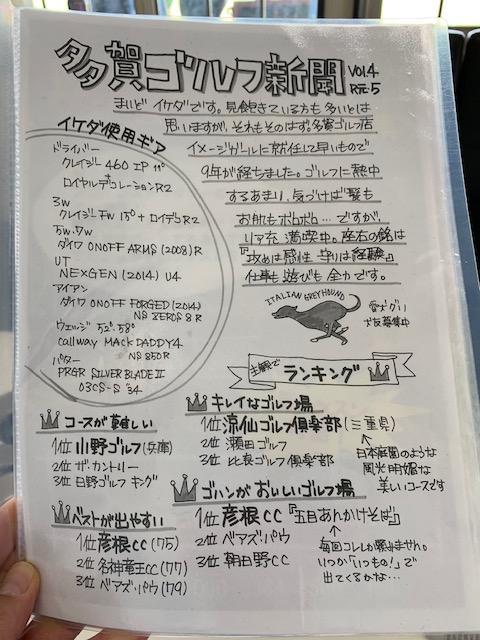 多賀ゴルフ新聞 VOL.4
R元.5
まいど イケダです。見飽きている方も多いとは
思いますが、それもそのはず。多賀ゴルフ店
イメージガールに就任して早いもので
9年が経ちました。ゴルフに熱中
するあまり、気づけば髪も
お肌もボロボロ…ですが、
リア充 満喫中。座右の銘は
『攻めは感性 守りは経験』
仕事も遊びも全力です。
イケダ使用ギア
ドライバー
クレイジー 460 EP 11°
+
ロイヤルデコレーションR2
3W
クレイジーFW 15° + ロイデコR2
5W.7W
ダイワ ONOFF ARMS (2008) R
UT
NEXGEN (2014) U4
アイアン
ダイワ ONOFF FORGED (2014)
NS ZEROS 8 R
ウェッジ 52°.58°
Callway MACK DADDY4
NS 850R
パター
PRGR SILVER BLADE II
03CS-S 34
ITALIAN GREYHOUND
犬友募集中
主観で ランキング
コースが難しい
1位 山野ゴルフ(兵庫)
2位 ザ・カントリー
3位 日野ゴルフ キング
キレイなゴルフ場
1位 涼仙ゴルフ倶楽部(三重県)
2位 瀬田ゴルフ
3位 比良ゴルフ倶楽部
日本庭園のような
風光明媚な
美しいコースです
ベストが出やすい
1位 彦根CC (75)
2位 名神竜王CC (77)
3位 ベアズ・パウ (79)
ゴハンがおいしいゴルフ場
1位 彦根CC『五目あんかけそば』
2位 ベアズ・パウ
3位 朝日野CC
毎回コレしか頼みません。
いつか「いつもの!」で
出てくるかな…